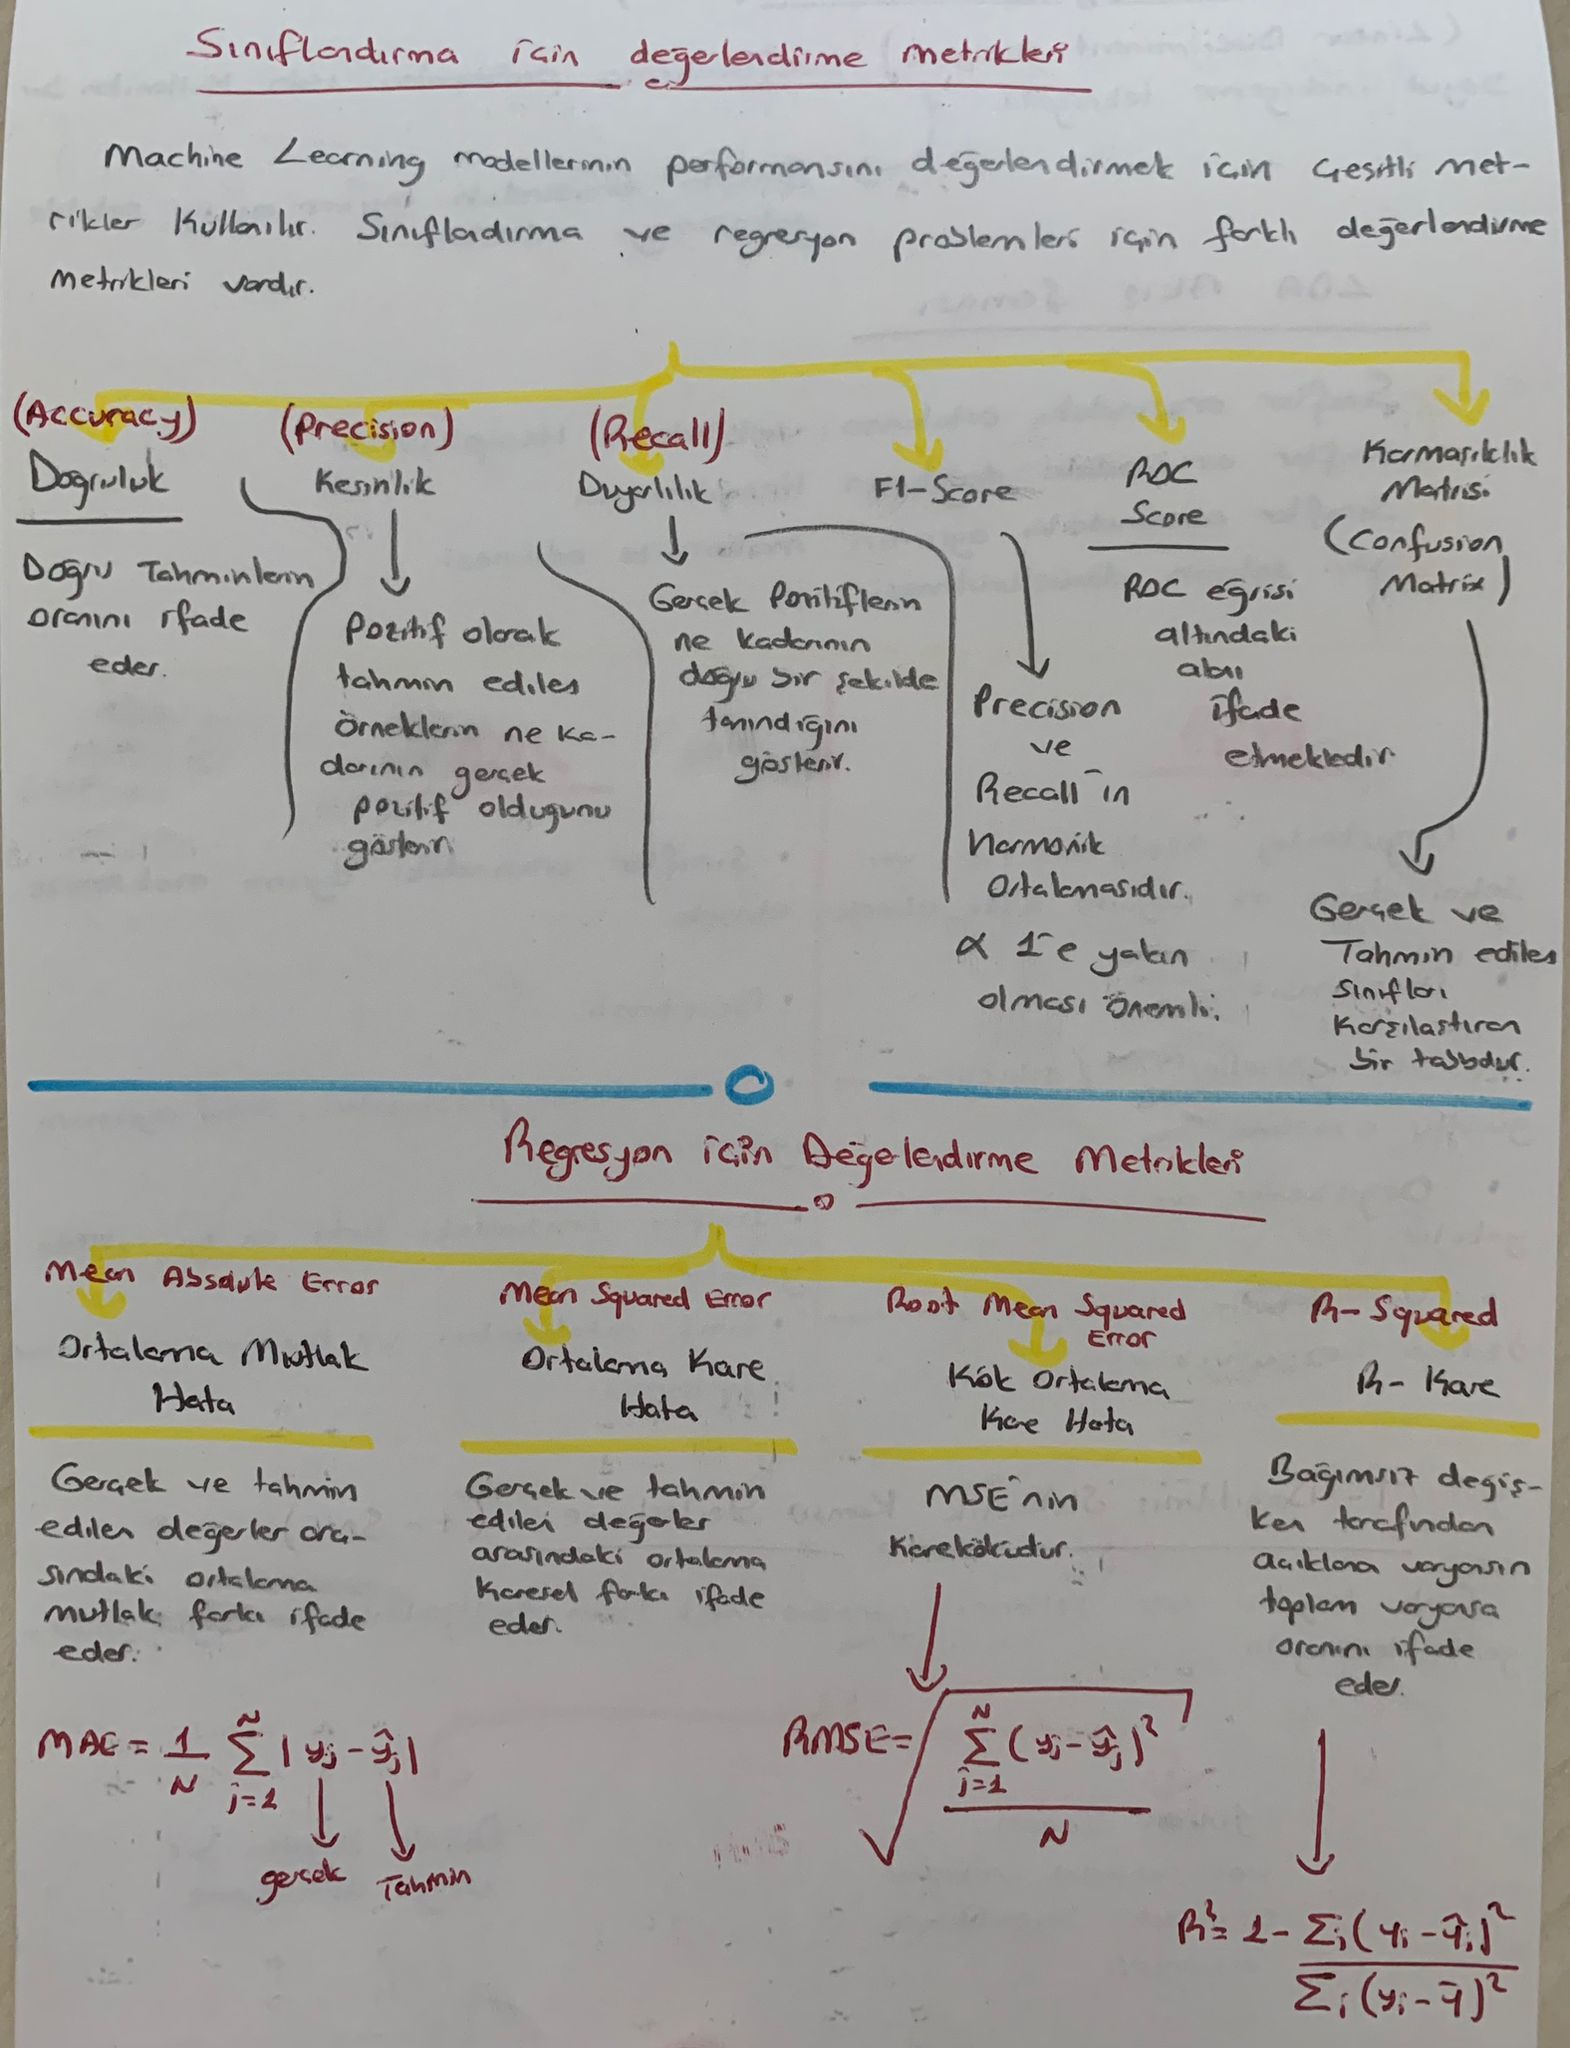 Sınıflandırma için değerlendirme Metrikleri
Machine Learning modellerinin performansını değerlendirmek için Çeşitli Met-
rikler Kullanılır. Sınıflandırma ve regresyon problemleri için farklı değerlendirme
Metrikleri vardır.
(Accuracy)
Doğruluk
Doğru Tahminlerin
oranını ifade
eder.
(Precision)
Kesinlik
Pozitif olarak
tahmin edilen
örneklerin ne ka-
darının gerçek
pozitif olduğunu
gösterir
(Recall)
Duyarlılık
Gerçek Pozitiflerin
ne kadarının
doğru bir şekilde
tanındığını
gösterir.
F1-Score
Precision
ve
Recall'in
Harmonik
Ortalamasıdır.
α 1'e yakın
olması önemli.
ROC
Score
ROC eğrisi
altındaki
alanı
ifade
etmektedir.
Karmaşıklık
Matrisi
(Confusion
Matrix)
Gerçek ve
Tahmin edilen
sınıfları
Karşılaştıran
bir tablodur.
Regresyon için Değerlendirme Metrikleri
Mean Absolute Error
Ortalama Mutlak
Hata
Gerçek ve tahmin
edilen değerler ara-
sındaki ortalama
mutlak farkı ifade
eder.
MAE = 1/N N∑j=1 |yj - ŷj|
gerçek Tahmin
Mean Squared Error
Ortalama Kare
Hata
Gerçek ve tahmin
edilen değerler
arasındaki ortalama
Karesel farkı ifade
eder.
Root Mean Squared
Error
Kök Ortalama
Kare Hata
MSE'nin
Kareköküdür.
RMSE = √ N∑j=1 (yj - ŷj)² / N
R-Squared
R-Kare
Bağımsız değiş-
ken tarafından
açıklana varyasın
toplam varyansa
oranını ifade
eder.
R² = 1 - ∑i(yi - ŷi)² / ∑i(yi - ȳ)²